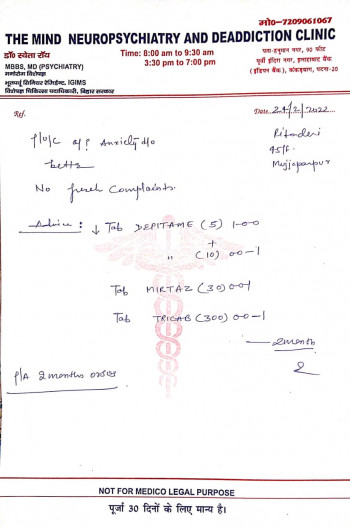 मो०-7209061067
THE MIND NEUROPSYCHIATRY AND DEADDICTION CLINIC
डॉ० स्वेता रॉय
MBBS, MD (PSYCHIATRY)
मनोरोग विशेषज्ञ
भूतपूर्व सिनियर रेजिडेन्ट, IGIMS
विशेषज्ञ चिकित्सा पदाधिकारी, बिहार सरकार
Time: 8:00 am to 9:30 am
3:30 pm to 7:00 pm
पता-हनुमान नगर, 90 फीट
पूर्वी इंदिरा नगर, इन्द्रावाट कैंप
(इंडियन बैंक), कंकड़बाग, पटना-20
Ref.
Date 24/2/2022
f/u/c of? Anxiety d/o
better
No fresh Complaints.
45/f.
Advice : ↓ Tab DEPITAME (5) 1-0-0
+
" (10) 00-1
Tab MIRTAZ (30) 001
Tab TRICAB (300) 00-1
2 month
2 months
NOT FOR MEDICO LEGAL PURPOSE
पूर्जा 30 दिनों के लिए मान्य है।